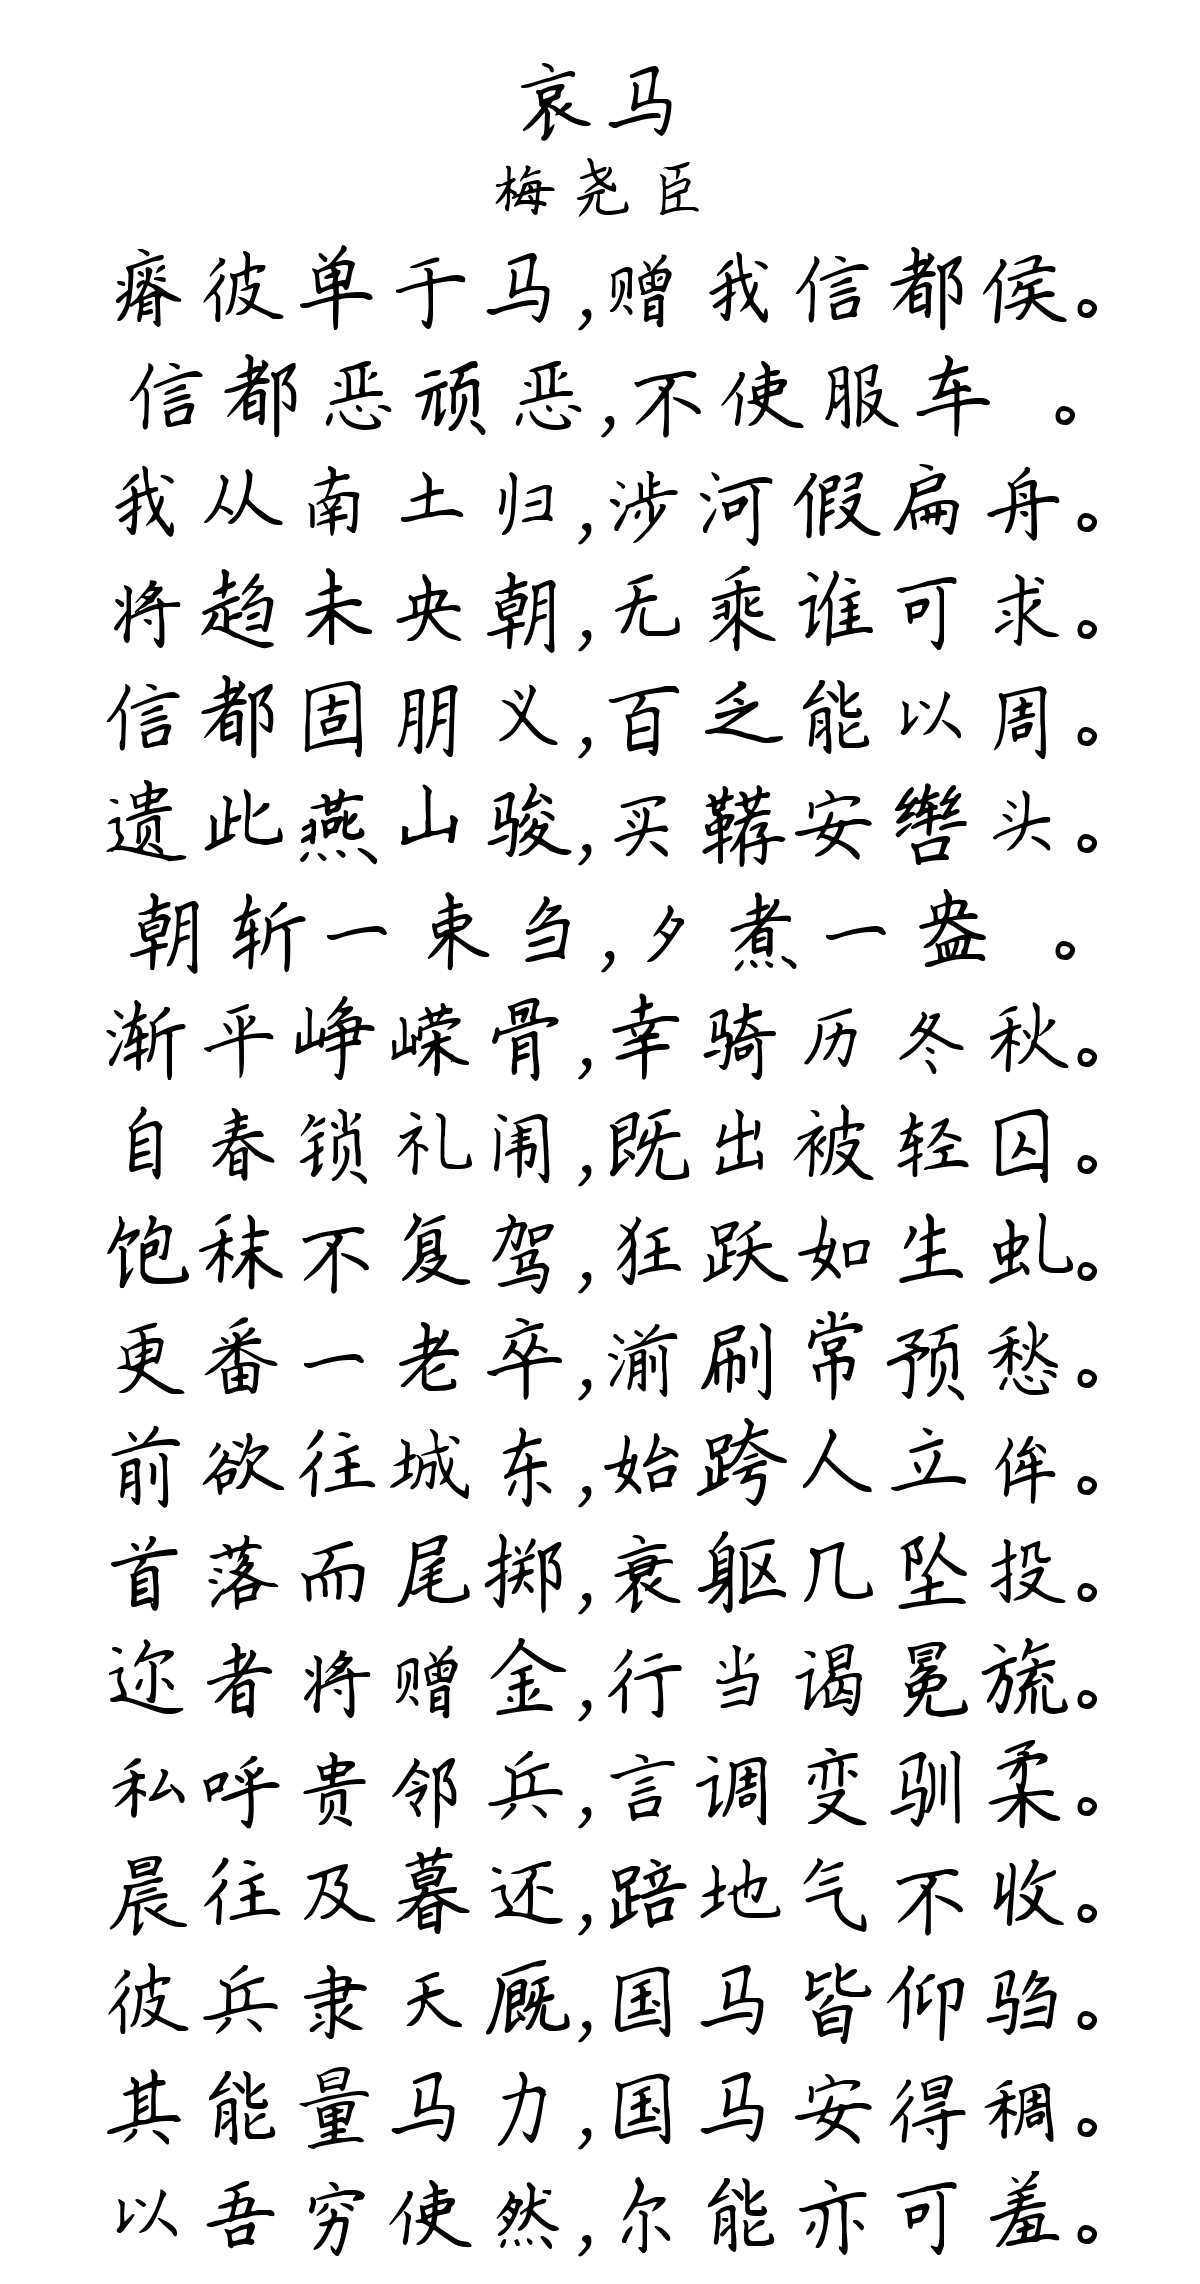 哀马
梅尧臣
瘠彼单于马,赠我信都侯。
信都恶顽恶,不使服车 。
我从南土归,涉河假扁舟。
将趋未央朝,无乘谁可求。
信都固朋义,百乏能以周。
遗此燕山骏,买鞯安辔头。
朝斩一束刍,夕煮一盎 。
渐平峥嵘骨,幸骑历冬秋。
自春锁礼闱,既出被轻囚。
饱秣不复驾,狂跃如生虬。
更番一老卒,湔刷常预愁。
前欲往城东,始跨人立侔。
首落而尾掷,衰躯几坠投。
迩者将赠金,行当谒冕旒。
私呼贵邻兵,言调变驯柔。
晨往及暮还,踣地气不收。
彼兵隶天厩,国马皆仰驺。
其能量马力,国马安得稠。
以吾穷使然,尔能亦可羞。